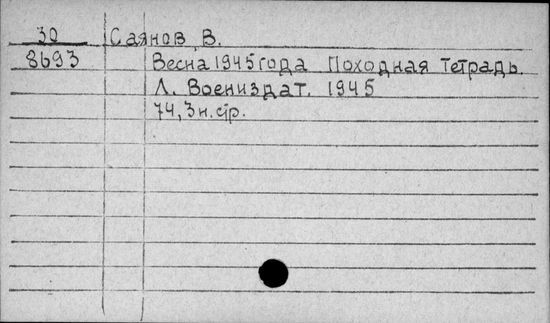 30 Саянов, В.
8693 Весна 1945 года Походная тетрадь.
Л. Воениздат. 1945
74, 3 н. стр.